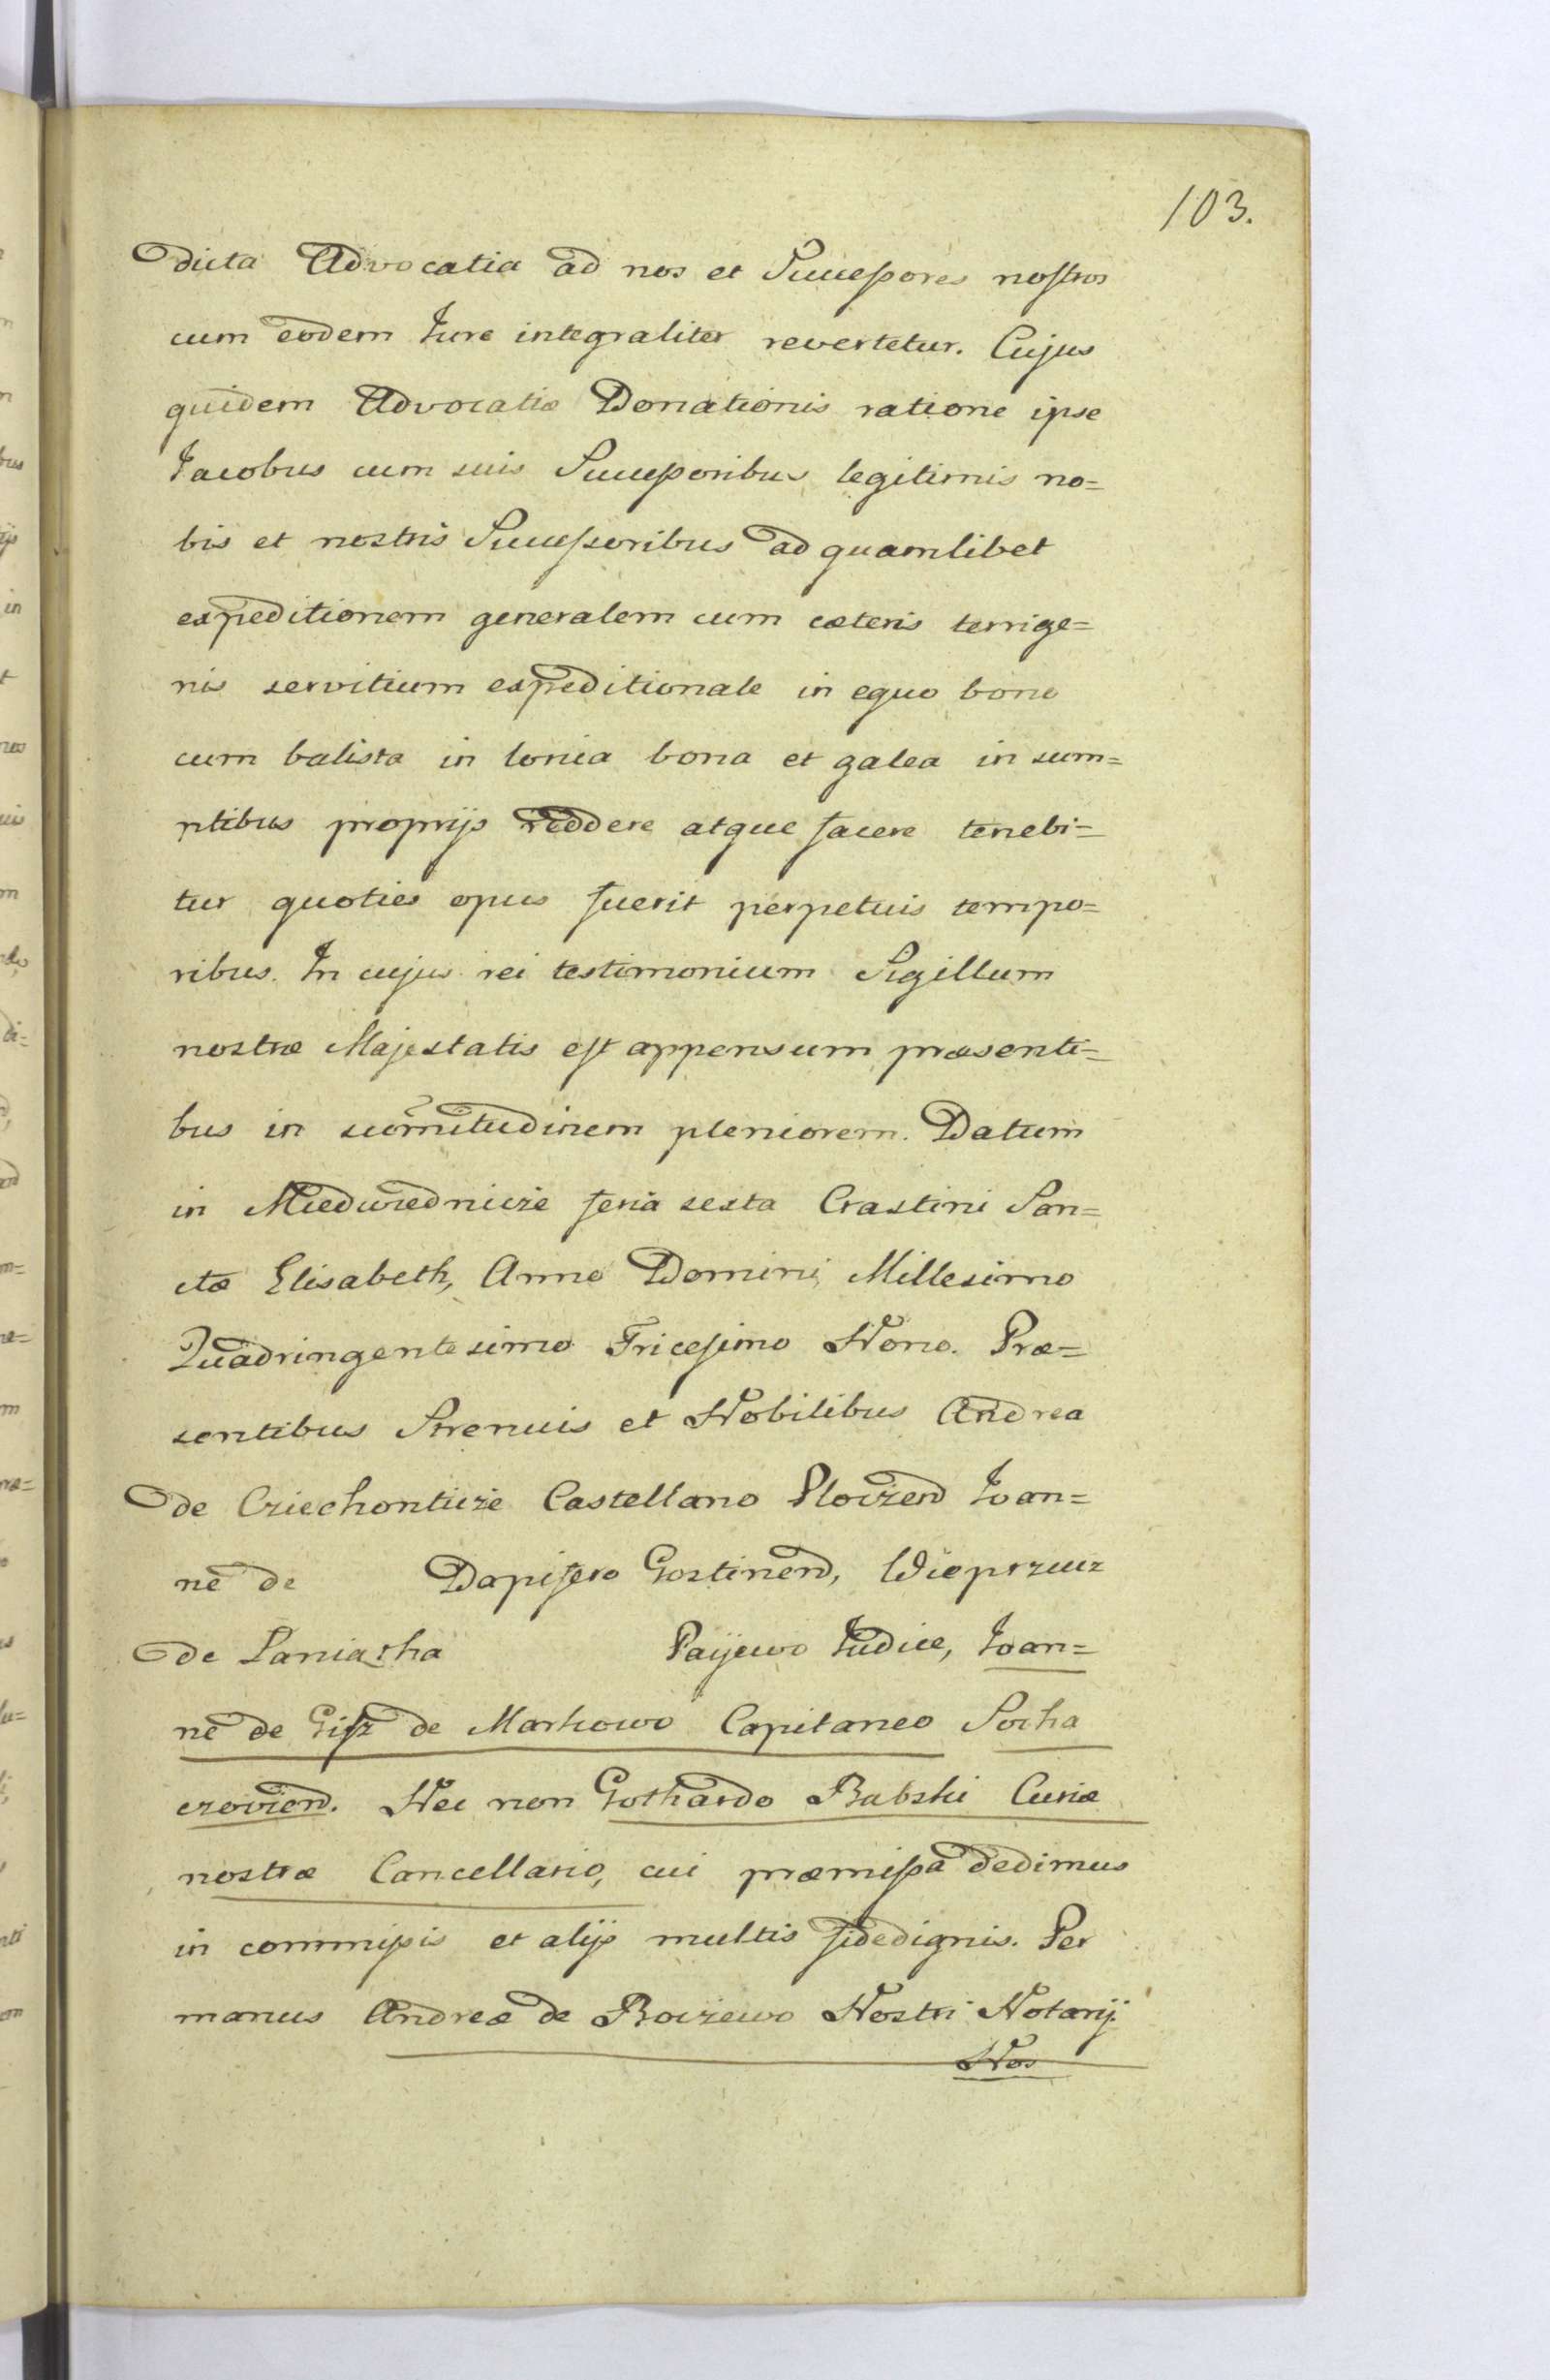 103.
dicta Advocatia ad nos et Successores nostros
cum eodem Jure integraliter revertetur. Cujus
quidem Advocatiæ Donationis ratione ipse
Jacobus cum suis Successoribus legitimis no=
bis et nostris Successoribus ad quamlibet
expeditionem generalem cum cæteris terrige=
nis servitium expeditionale in equo bono
cum balista in lorica bona et galea in sum=
ptibus proprijs reddere atque facere tenebi=
tur quoties opus fuerit perpetuis tempo=
ribus. In cujus rei testimonium Sigillum
nostræ Majestatis est appensum præsenti=
bus in pleniorem. Datum
in Miedwiednicze feria sexta Crastini San=
ctæ Elisabeth, Anno Domini Millesimo
Quadringentesimo Tricesimo Nono. Præ=
sentibus Strenuis et Nobilibus Andrea
de Cziechonticze Castellano Ploczen Joan=
ne de Dapifero Gostinen,
de Judice, Joan=
ne de de Markowo Capitaneo Socha
czovien. Nec non Gothardo Babski Curiæ
nostræ Cancellario, cui præmissa dedimus
in commissis et alijs multis fidedignis. Per
manus Andreæ de Boczewo Nostri Notarij.
Nos